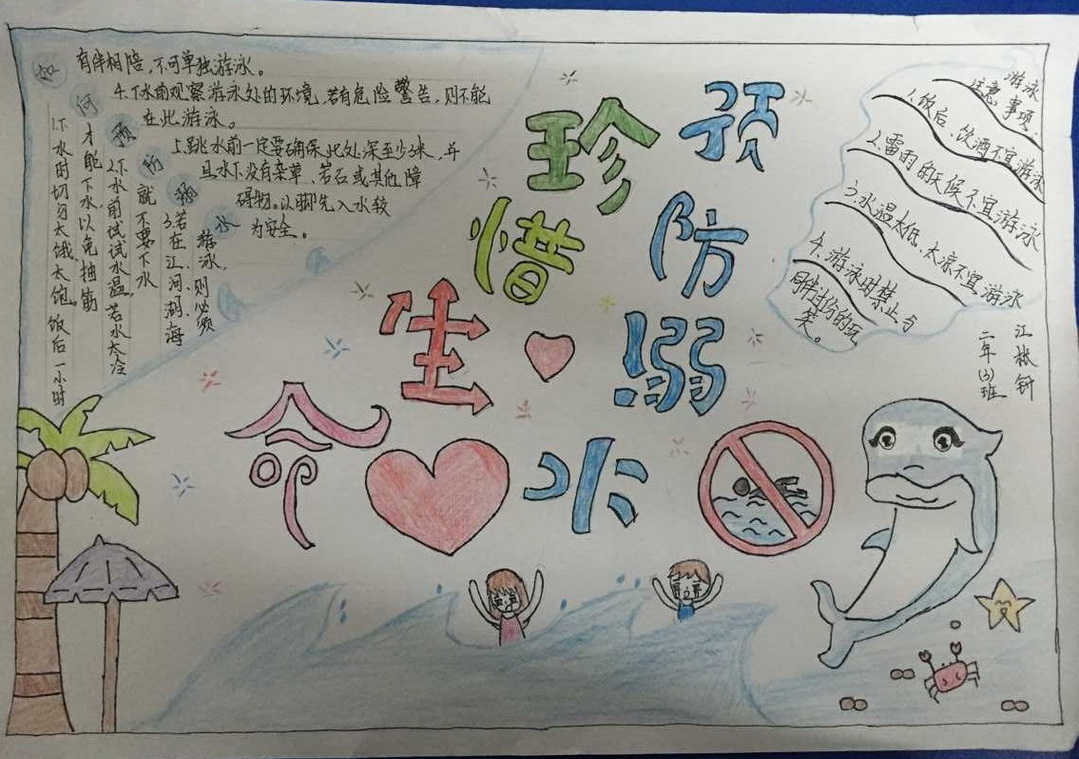 珍惜生命
预防溺水
如何预防溺水
1.下水时切勿太饿、太饱。饭后一小时
才能下水,以免抽筋
2.下水前试试水温,若水太冷
就不要下水
3.若在江、河、湖、海
游泳,则必须
有伴相陪,不可单独游泳。
4.下水前观察游泳处的环境,若有危险警告,则不能
在此游泳。
5.跳水前一定要确保此处深至少3米,并
且水下没有杂草、岩石或其他障
碍物。以脚先入水较
为安全。
游泳
注意事项:
1.饭后、饮酒不宜游泳
2.雷雨的天候不宜游泳
3.水温太低、太凉不宜游泳
4.游泳时禁止与
同伴过份的玩
笑。
二年(3)班
江